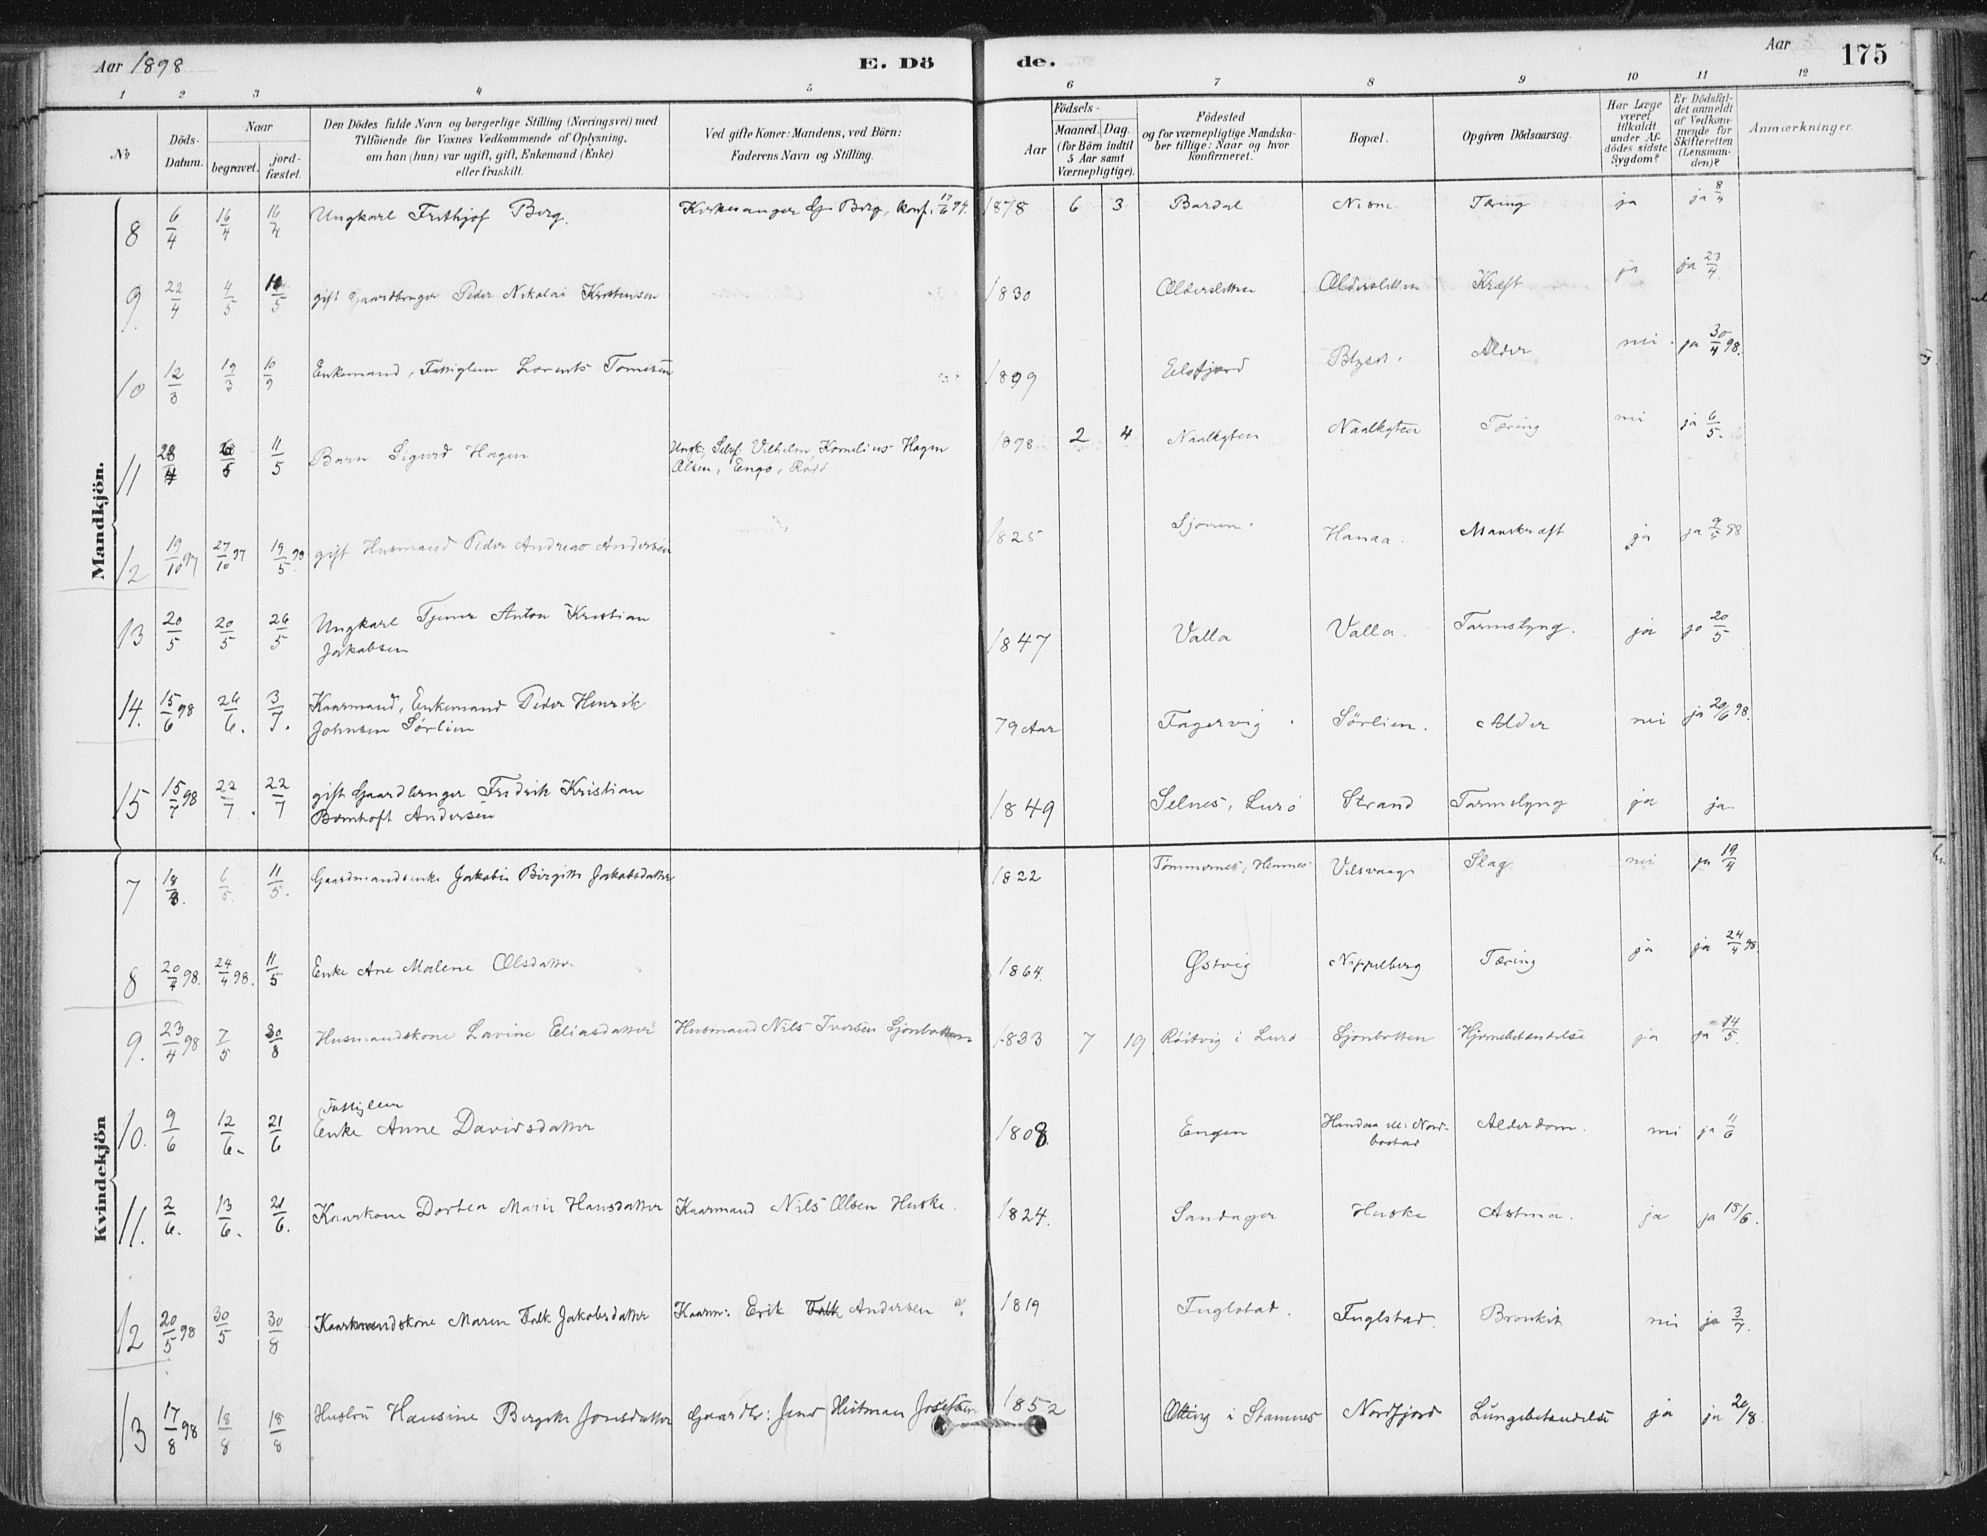 Aar 1898
E. Dö
de.
Aar
175
1 2 3 4 5 6 7 8 9 10 11 12
No
Döds-Datum.
Naar
begravet.
jord-fæstet.
Den Dödes fulde Navn og borgerlige Stilling (Næringsvei) med
Tilföiende for Voxnes Vedkommende af Oplysning,
om han (hun) var ugift, gift, Enkemand (Enke)
eller fraskilt.
Ved gifte Koner: Mandens, ved Börn:
Faderens Navn og Stilling.
Födsels-
Aar
Maaned. Dag.
(for Börn indtil
5 Aar samt
Værnepligtige).
Födested
og for værnepligtige Mandska-
ber tillige: Naar og hvor
konfirmeret.
Bopæl.
Opgiven Dödsaarsag.
Har Læge
været
tilkaldt
under Af-
dödes sidste
Sygdom?
Er Dödsfal-
det anmeldt
af Vedkom-
mende for
Skifteretten
(Lensman-
den)?
Anmærkninger.
Mandkjön.
8 6/4 16/4 16/4 Ungkarl Frithjof Berg. Kirkesanger Berg, konf. 17/6 94. 1878 6 3 Bardal Nesne Tæring ja ja 8/4
9. 22/4 4/5 /5 gift Gaardbruger Peder Nikolai Kristensen 1830 Øldersletten Ølderslettin Kræft ja ja 23/4.
10 12/3 19/3 10/9 Enkemand, Fattiglem Lorents Tomesen Eelsfjord Alder nei ja 30/4 98.
11 28/4 /5 11/5 Barn Sigurd Hagen Ungk; Selvf. Vilhelm Kornelius Hagen
Olsen, Engø, Rødø 1898 2 4 Naalkyten Naalkyten Tæring nei ja 6/5.
12 19/10 97 27/10 97 19/5 98 gift Husmand Peder Andreas Andersen 1825 Sjonen. Hanaa. Mavekræft ja ja 9/5 98
13 20/5 20/5 26/5 Ungkarl Tjener Anton Kristian
Jakobsen 1847 Valla Valla. Tarmslyng. ja ja 20/5
14. 15/6 98 26/6. 3/7. Kaarmand, Enkemand Peder Henrik
Johnsen Sørlien 79 Aar Fagervig. Sørlien. Alder nei ja 20/6 98.
15 15/7 98 22/7. 22/7 gift Gaardbruger Fredrik Kristian
Bernhoft Andersen 1849 Selnes, Lurö Strand Tarmslyng ja ja
Kvindekjön
7 14/3. 6/5. 11/5. Gaardmandsenke Jakobie Birgitte Jakobsdatter 1822 Tømmernes, Hemnes Vilsvaag Slag nei ja 19/4
8 20/4 98. 24/4 98. 11/5 Enke Ane Malene Olsdatter 1864. Østvig Nippelberg Tæring ja ja 24/4 98.
9. 23/4 98 7/5 30/8 Husmandskone Lavine Eliasdatter Husmand Nils Iversen Sjonbotten 1833 7 19 Röitvig i Lurö Sjonbotten Hjernebetændelse ja ja 14/5.
10. 9/6 12/6. 21/6 Fattiglem
Enke Anne Davidsdatter 1808. Engen Alderdom. nei ja 11/6
11. 2/6. 13/6. 21/6. Kaarkone Dortea Marie Hansdatter Kaarmand Nils Olsen Huske. 1824. Sandager Huske Astma. ja ja 15/6.
12 20/5 98 30/5 30/8 Kaarmandskone Maren Falk Jakobsdatter Kaarm: Erik Falk Andersen 1819 Fuglstad. Fuglstad. Bronkit nei ja 3/7.
13 17/8 98 18/8 18/8 Hustru Hansine Bergitte Jonsdatter Gaardbr: Jens Hertman Josefsen 1852 i Stamnes Nordfjord Lungebetændelse ja ja 20/8.